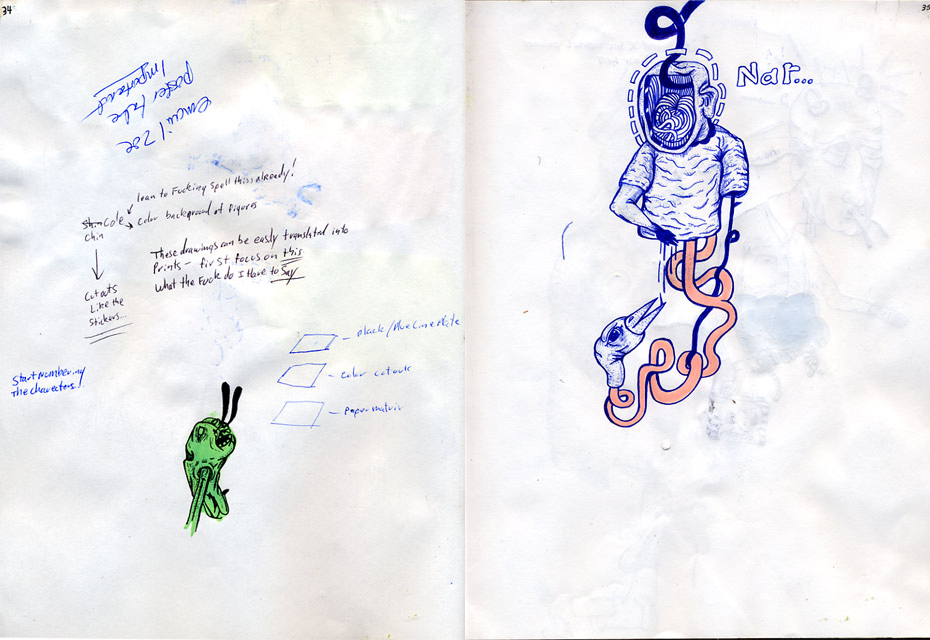 34
email zoe
poster tube
Important
lean to Fucking Spell this already!
Shin Cole
Chin
Color background of Figures
These drawings can be easily translated into
Prints - first focus on this
What the Fuck do I Have to Say
Cutouts
Like the
Stickers...
Black/Blue Line Plate
Color cutouts
Paper matrix
Start Numbering
The charecters!
35
Nar...